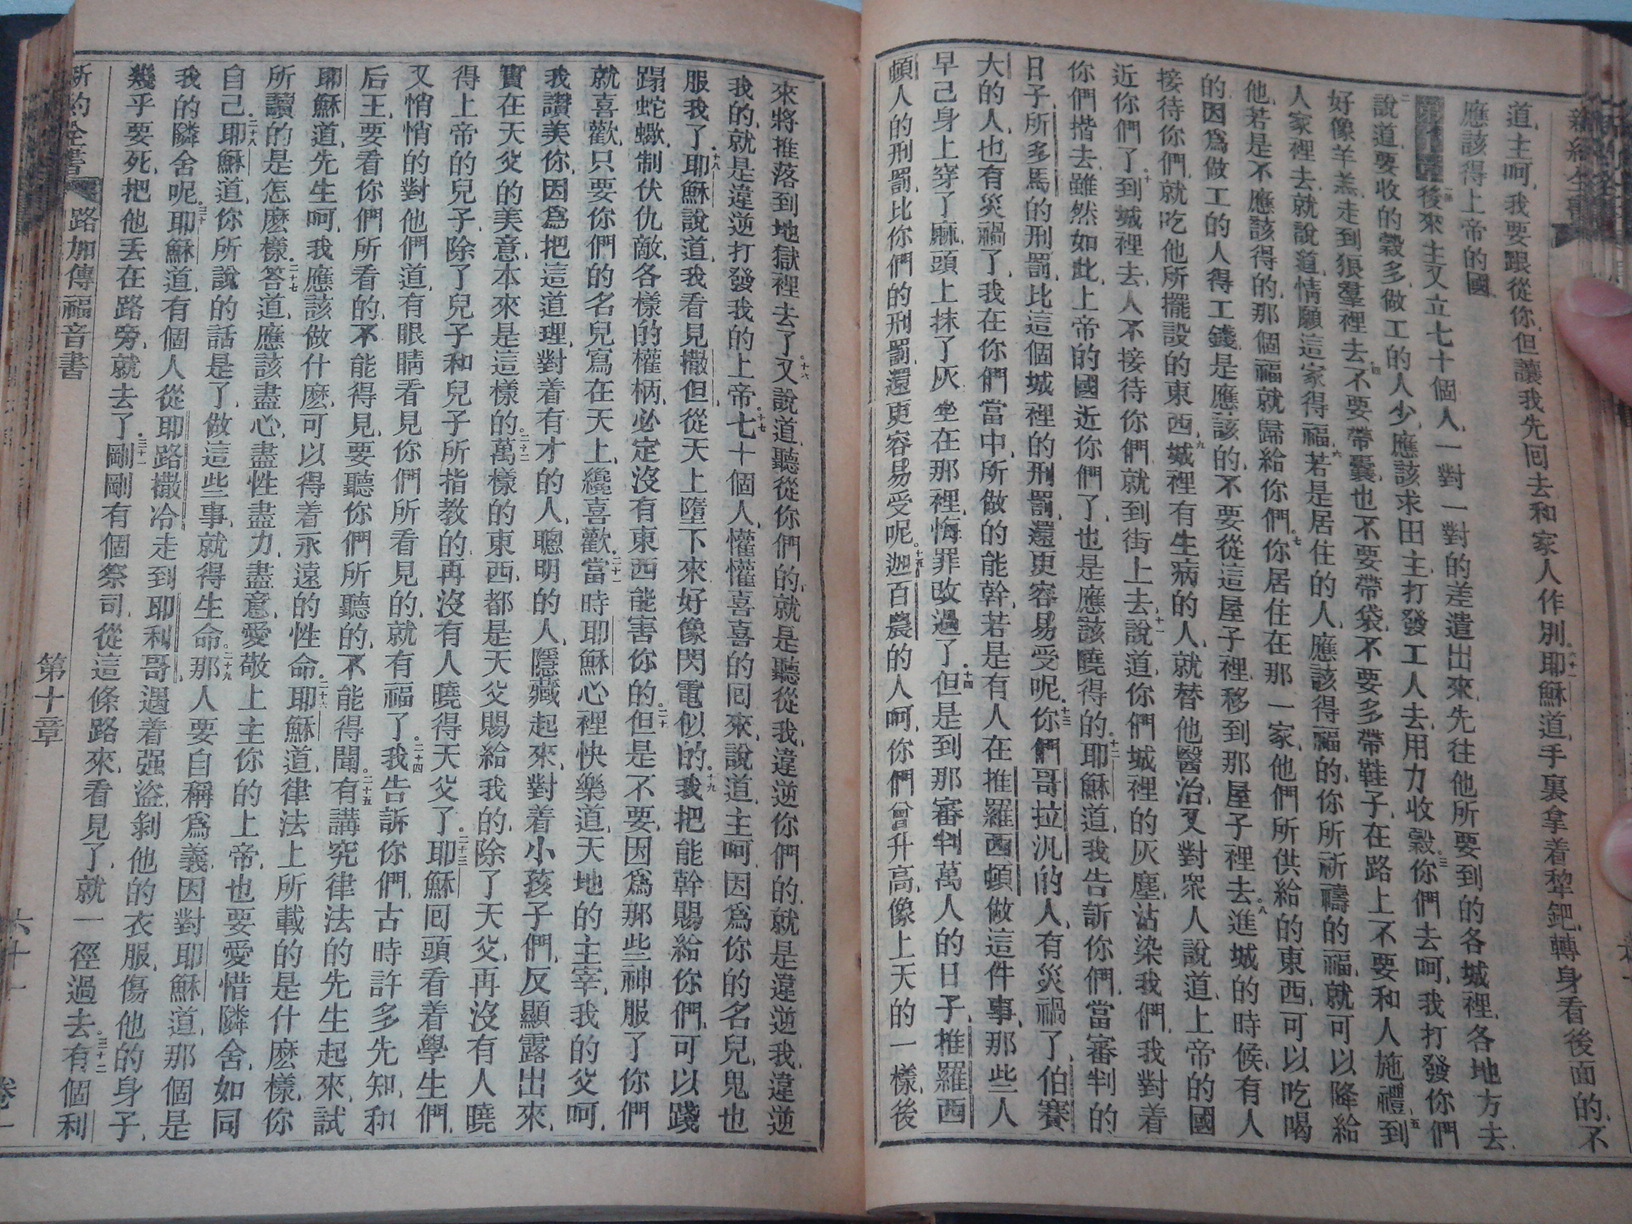 道、主呵、我要跟從你、但讓我先囘去和家人作別、六十二耶穌道、手裏拿着犂鈀、轉身看後面的、不
應該得上帝的國、
後來主又立七十個人、一對一對的差遣出來、先往他所要到的各城裡、各地方去、
二說道、要收的穀多、做工的人少、應該求田主打發工人去用力收穀、三你們去呵、我打發你們
好像羊羔、走到狼羣裡去、四不要帶囊、也不要帶袋、不要多帶鞋子、在路上不要和人施禮、五到
人家裡去、就說道、情願這家得福、六若是居住的人、應該得福的、你所祈禱的福、就可以降給
他、若是不應該得的、那個福就歸給你們、七你居住在那一家、他們所供給的東西、可以吃喝
的、因爲做工的人得工錢、是應該的、不要從這屋子裡、移到那屋子裡去、八進城的時候、有人
接待你們、就吃他所擺設的東西、九城裡有生病的人、就替他醫治、又對衆人說道、上帝的國
近你們了、十到城裡去、人不接待你們、就到街上去、十一說道、你們城裡的灰塵、沾染我們、我對着
你們揩去、雖然如此、上帝的國近你們了、也是應該曉得的、十二耶穌道、我告訴你們、當審判的
日子、所多馬的刑罰、比這個城裡的刑罰、還更容易受呢、十三你們哥拉汎的人、有災禍了、伯賽
大的人、也有災禍了、我在你們當中、所做的能幹、若是有人在推羅西頓、做這件事、那些人
早己身上穿了蔴、頭上抹了灰、坐在那裡、悔罪改過了、十四但是到那審判萬人的日子、推羅西
頓人的刑罰、比你們的刑罰、還更容易受呢、十五迦百農的人呵、你們曾升高、像上天的一樣、後
來將推落到地獄裡去了、十六又說道、聽從你們的、就是聽從我、違逆你們的、就是違逆我、違逆
我的、就是違逆打發我的上帝、十七七十個人懽懽喜喜的囘來、說道、主呵、因爲你的名兒、鬼也
服我了、十八耶穌說道、我看見撒但從天上墮下來、好像閃電似的、十九我把能幹賜給你們、可以踐
蹋蛇蠍、制伏仇敵、各樣的權柄、必定沒有東西能害你的、二十但是不要因爲那些神服了你們
就喜歡、只要你們的名兒寫在天上、纔喜歡、二十一當時耶穌心裡快樂道、天地的主宰、我的父呵、
我讚美你、因爲把這道理、對着有才的人、聰明的人、隱藏起來、對着小孩子們、反顯露出來、
實在天父的美意、本來是這樣的、二十二萬樣的東西、都是天父賜給我的、除了天父、再沒有人曉
得上帝的兒子、除了兒子和兒子所指教的、再沒有人曉得天父了、二十三耶穌囘頭看着學生們、
又悄悄的對他們道、有眼睛看見你們所看見的、就有福了、二十四我告訴你們、古時許多先知、和
后王、要看你們所看的、不能得見、要聽你們所聽的、不能得聞、二十五有講究律法的先生起來、試
耶穌道、先生呵、我應該做什麽、可以得着永遠的性命、二十六耶穌道、律法上所載的是什麽樣、你
所讀的是怎麽樣、二十七答道、應該盡心、盡性、盡力、盡意、愛敬上主你的上帝、也要愛惜隣舍、如同
自己、二十八耶穌道、你所說的話是了、做這些事、就得生命、二十九那人要自稱爲義、因對耶穌道、那個是
我的隣舍呢、三十耶穌道、有個人從耶路撒冷走到耶利哥、遇着强盜、剝他的衣服、傷他的身子、
幾乎要死、把他丢在路旁、就去了、三十一剛剛有個祭司、從這條路來、看見了、就一徑過去、三十二有個利
新約全書 路加傳福音書 第十章 六十一 卷一